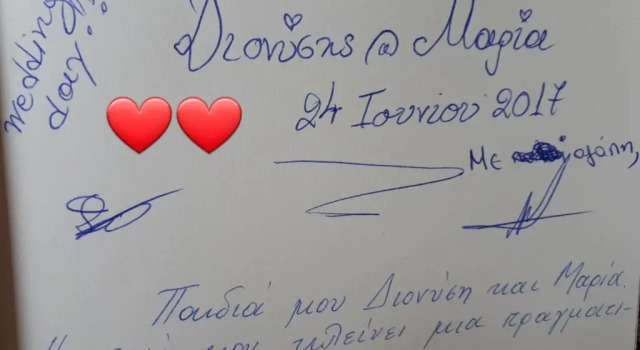 wedding
day!!
Διονύσης @ Μαρία
24 Ιουνίου 2017
Με αγάπη,
Παιδιά μου Διονύση και Μαρία.
μου μια πραγματι-